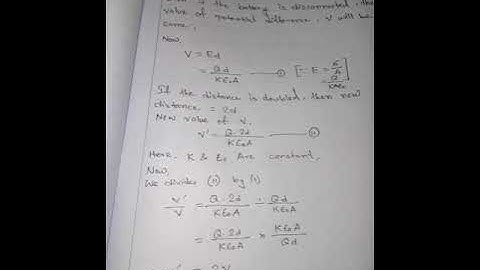 is the battery is disconnected, the
value of potential difference, V will be
same.
Now,
V = Ed
= Qd / Kε₀A — (i) [∵ E =
If the distance is doubled, then new
distance = 2d
New value of V,
V' = Q·2d / Kε₀A — (ii)
Here, K & ε₀ are constant.
Now,
We divides (ii) by (i)
V'/V = Q·2d / Kε₀A ÷ Qd / Kε₀A
= Q·2d / Kε₀A × Kε₀A / Qd